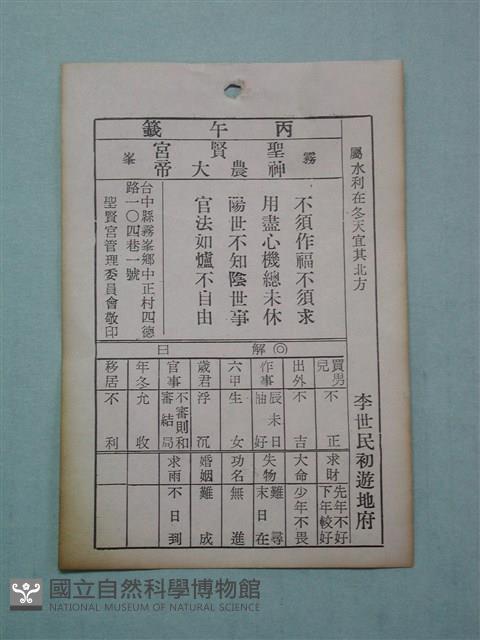 屬水利在冬天宜其北方
李世民初遊地府
丙午籤
霧峯
聖賢宮
神農大帝
不須作福不須求
用盡心機總未休
陽世不知陰世事
官法如爐不自由
台中縣霧峯鄉中正村四德
路一〇四巷一號
聖賢宮管理委員會敬印
◎解曰
買男兒 不正
出外 不吉
作事 辰未日 好
六甲 生女
歲君 浮沉
官事 不審則和 審結局
年冬 允收
移居 不利
求財 先年不好 下年較好
大命 少年不畏
失物 難尋 末日在
功名 無進
婚姻 難成
求雨 不日到
國立自然科學博物館
NATIONAL MUSEUM OF NATURAL SCIENCE